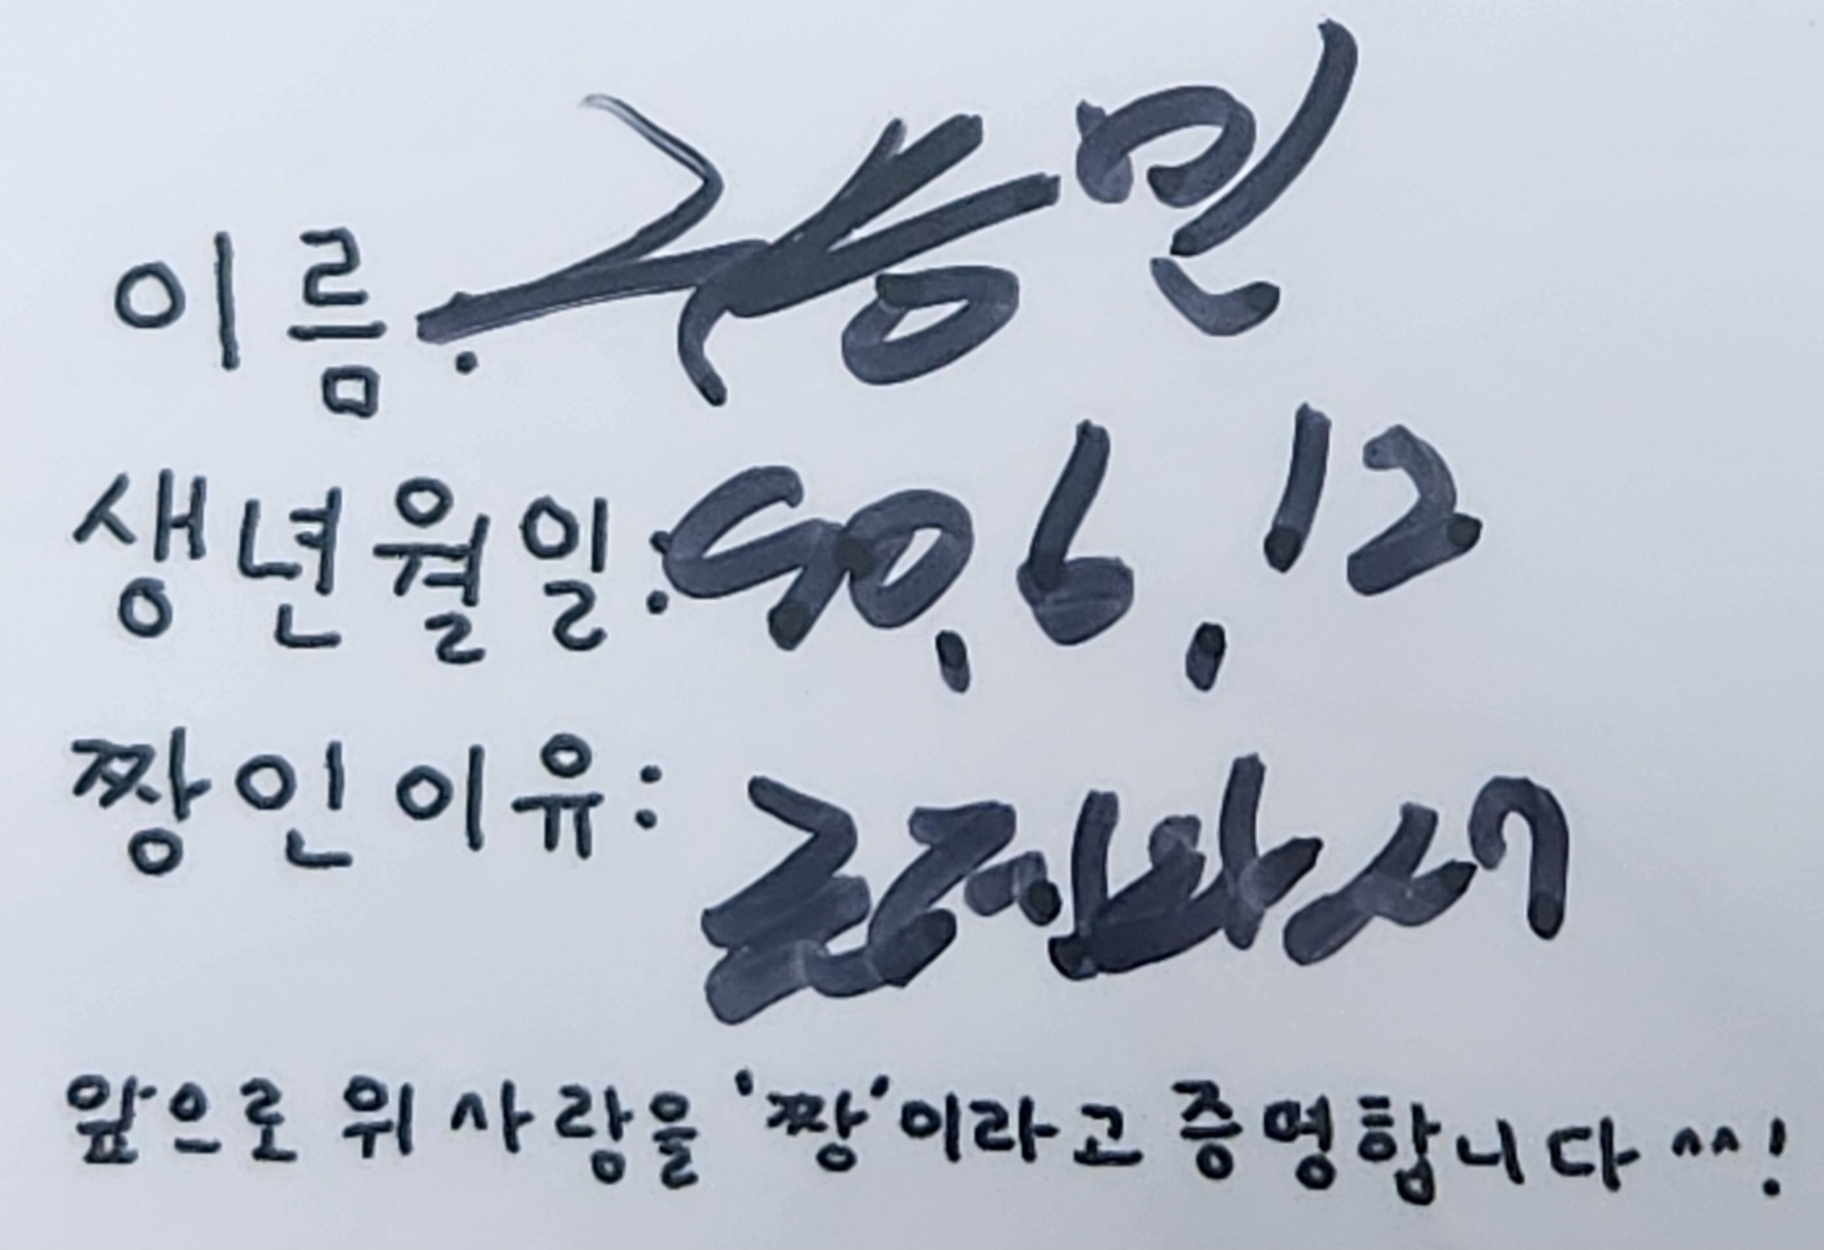 이름: 구승민
생년월일: 90. 6. 12
짱인이유:
앞으로 위 사람을 '짱'이라고 증명합니다 ^^!